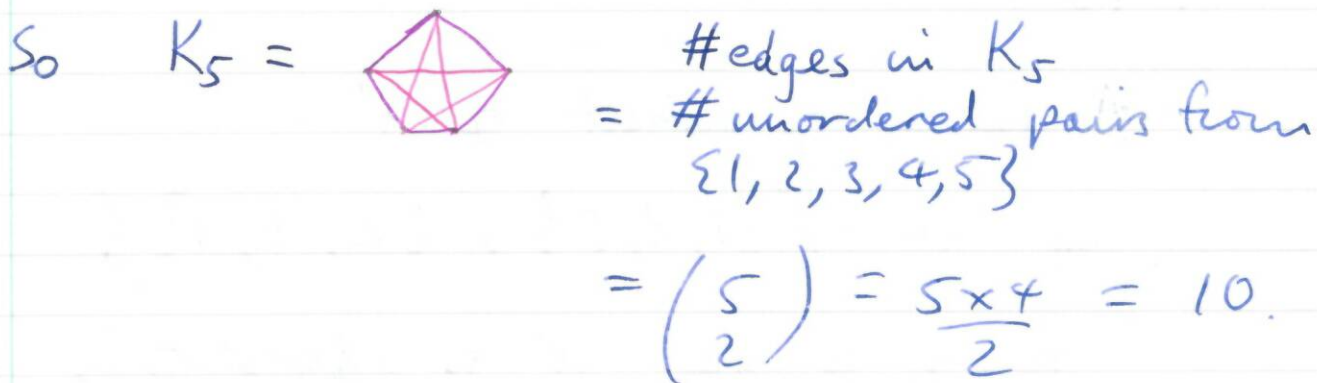 So K₅ = #edges in K₅
= # unordered pairs from
{1, 2, 3, 4, 5}
= (5 2) = 5×4/2 = 10.